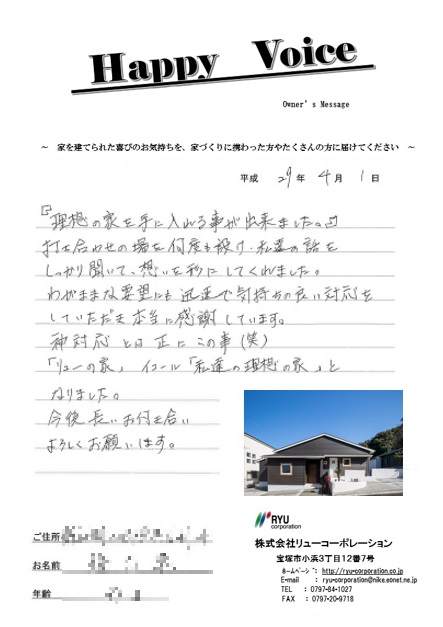 Happy Voice
Owner's Message
～ 家を建てられた喜びのお気持ちを、家づくりに携わった方やたくさんの方に届けてください ～
平成 29年 4月 1日
『理想の家を手に入れる事が出来ました。』
打ち合わせの場を何度も設け、私達の話を
しっかり聞いて、想いを形にしてくれました。
わがままな要望にも迅速で気持ちの良い対応を
していただき本当に感謝しています。
神対応とは正にこの事(笑)
「リューの家」イコール「私達の理想の家」と
なりました。
今後長いお付き合い
よろしくお願いします。
RYU
corporation
株式会社リューコーポレーション
宝塚市小浜3丁目12番7号
ホームページ : http://ryu-corporation.co.jp
E-mail : ryu-corporation@nike.eonet.ne.jp
TEL : 0797-84-1027
FAX : 0797-20-9718
ご住所
お名前
年齢